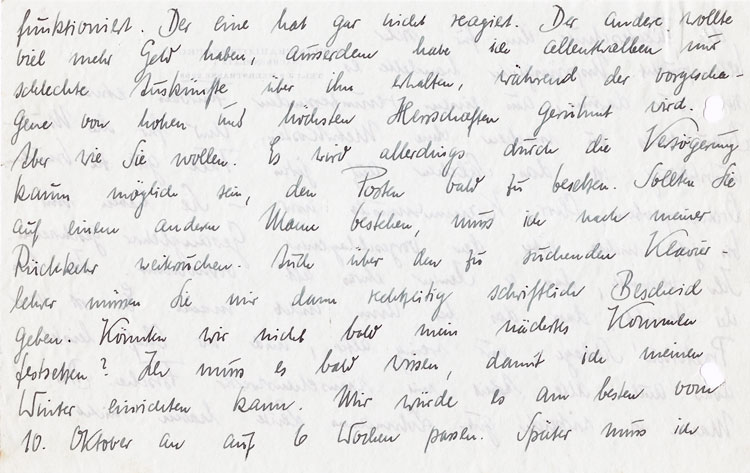 funktioniert. Der eine hat gar nicht reagiert. Der andere wollte
viel mehr Geld haben, ausserdem habe ich allenthalben nur
schlechte Auskünfte über ihn erhalten, während der vorgeschla-
gene von hohen und höchsten Herrschaften gerühmt wird.
Aber wie Sie wollen. Es wird allerdings durch die Verzögerung
kaum möglich sein, den Posten bald zu besetzen. Sollten Sie
auf einem andern Mann bestehen, muss ich nach meiner
Rückkehr weitersuchen. Auch über den zu suchenden Klavier-
lehrer müssen Sie mir dann rechtzeitig schriftlich Bescheid
geben. Könnten wir nicht bald mein nächstes Kommen
festsetzen? Ich muss es bald wissen, damit ich meinen
Winter einrichten kann. Mir würde es am besten vom
10. Oktober an auf 6 Wochen passen. Später muss ich